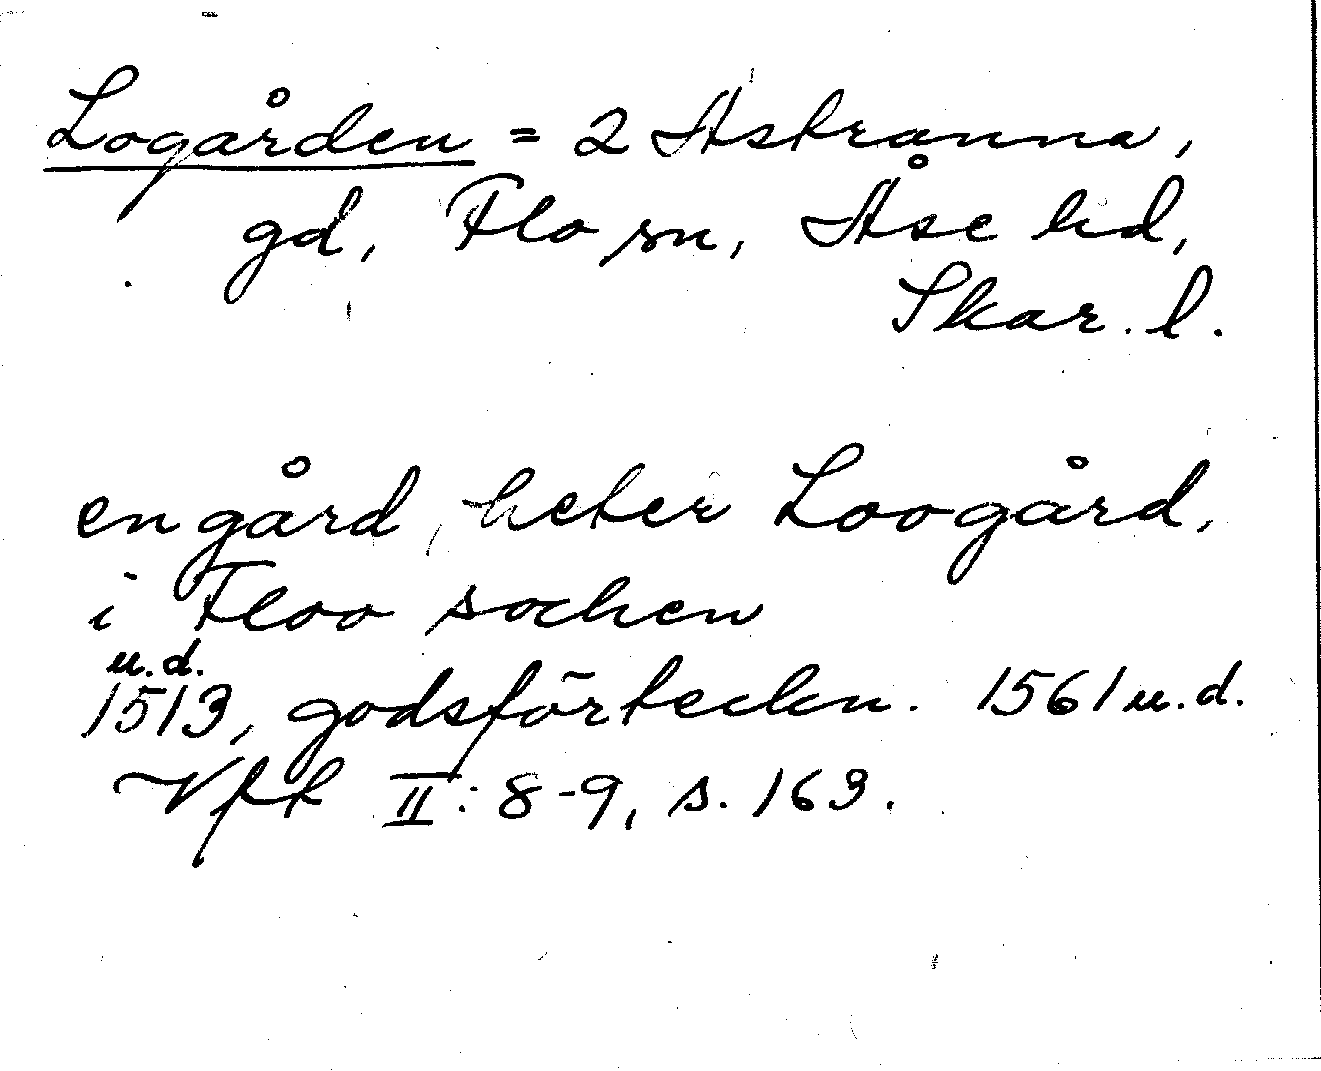 Logården = 2 Astranna,
gd, Flo sn, Åse hd,
Skar. l.
en gård, heter Loogård,
i Floo sochen
u.d.
1513, godsförteckn. 1561 u.d.
Vfk II: 8-9, s. 163.